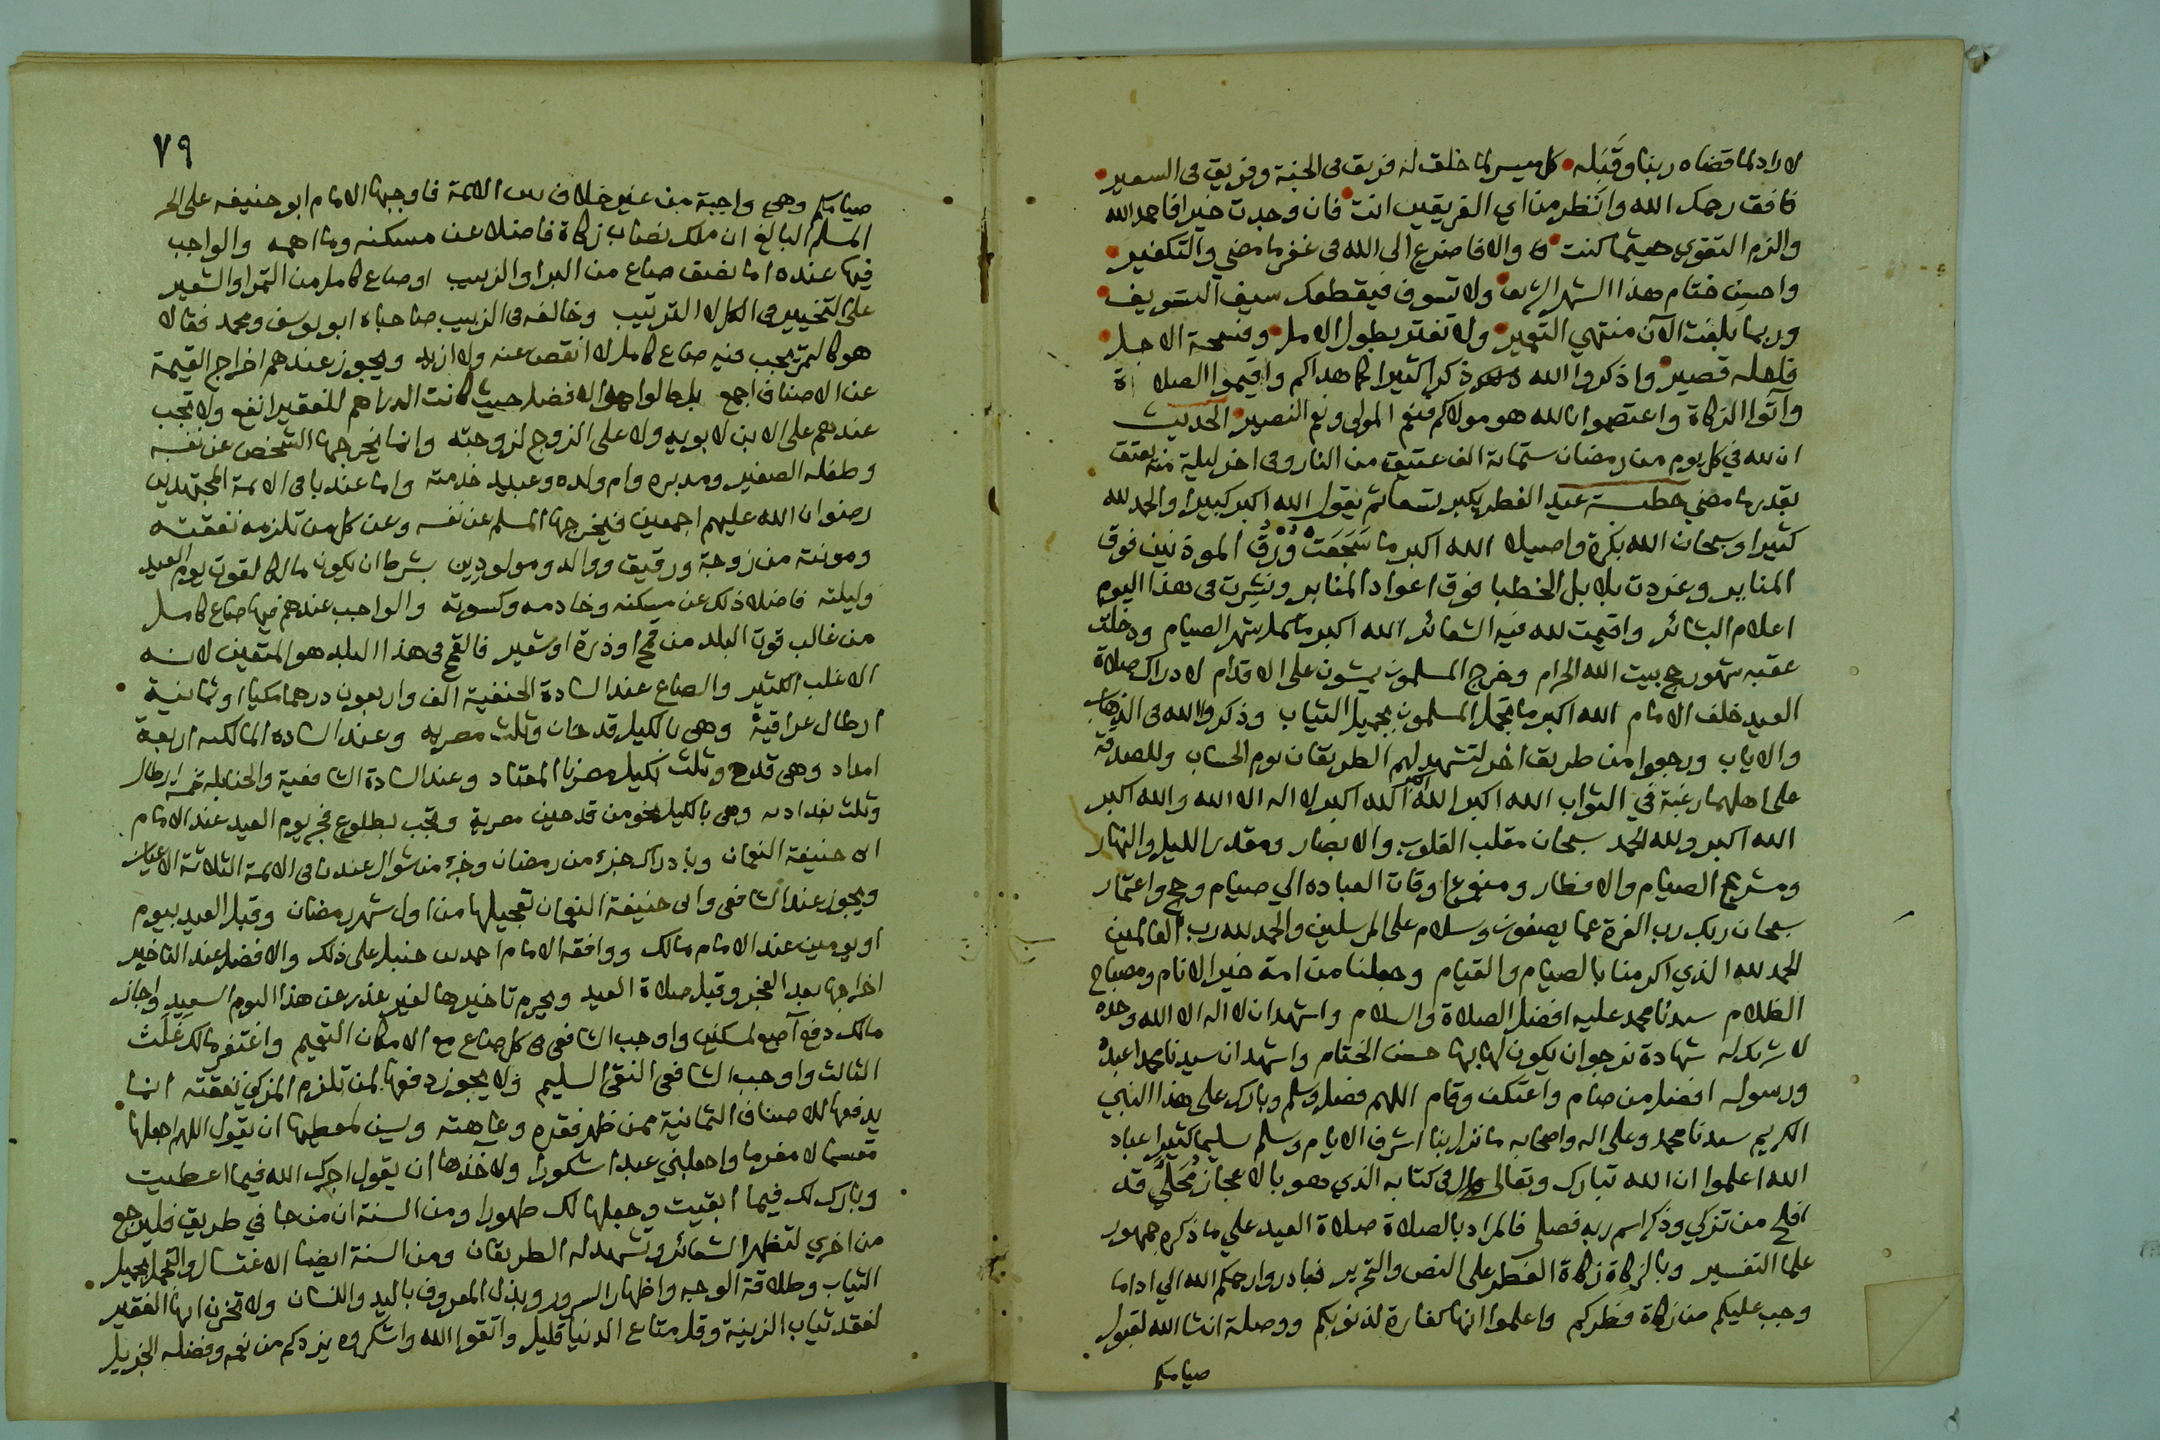 لا راد لما قضاه ربنا وقبله كل ميسر لما خلق له فريق في الجنة وفريق في السعير
فافق رحمك الله وانظر من اي الفريقين انت فان وجدت خيرا فاحمد الله
والزم التقوى حيثما كنت والا فاضرع الى الله في غفر ما مضى والتكفير
واحسن ختام هذا الشهر الشريف ولا تسوف فيقطعك سيف التسويف
وربما بلغت الآن منتهي التعمير ولا تغتر بطول الامل وفسحة الاجل
فلعله قصير واذكروا الله ذكرا كثيرا كما هداكم واقيموا الصلاة
وآتوا الزكاة واعتصموا بالله هو مولاكم فنعم المولى ونعم النصير الحديث
ان لله في كل يوم من رمضان ستمائة الف عتيق من النار وفي اخر ليلة منه يعتق
بقدر ما مضى خطبة عيد الفطر يكبر تسعا ثم يقول الله اكبر كبيرا والحمد لله
كثيرا وسبحان الله بكرة واصيلا الله اكبر ما سجعت ورق المؤذنين فوق
المنابر وغردت بلابل الخطبا فوق اعواد المنابر ونشرت في هذا اليوم
اعلام البشائر واقيمت لله فيه الشعائر الله اكبر ما كمل شهر الصيام ودخلت
عقبه شهور حج بيت الله الحرام وخرج المسلمون يمشون على الاقدام لادراك صلاة
العيد خلف الامام الله اكبر ما تجمل المسلمون بجميل الثياب وذكروا الله في الذهاب
والاياب ورجعوا من طريق اخر لتشهد لهم الطريقان يوم الحساب وللصدقة
على اهلها رغبة في الثواب الله اكبر الله اكبر الله اكبر لا اله الا الله والله اكبر
الله اكبر ولله الحمد سبحان مقلب القلوب والابصار ومقدر الليل والنهار
ومشرع الصيام والافطار ومنوع اوقات العباده الي صيام وحج واعتمار
سبحان ربك رب العزة عما يصفون وسلام على المرسلين والحمد لله رب العالمين
الحمد لله الذي اكرمنا بالصيام والقيام وجعلنا من امة خير الانام ومصباح
الظلام سيدنا محمد عليه افضل الصلاة والسلام واشهد ان لا اله الا الله وحده
لا شريك له شهادة نرجو ان يكون لنا بها حسن الختام واشهد ان سيدنا محمدا عبده
ورسوله افضل من صام واعتكف وقام اللهم فصل وسلم وبارك على هذا النبي
الكريم سيدنا محمد وعلى اله واصحابه ما نزل بنا اشرف الايام وسلم تسليما كثيرا عباد
الله اعلموا ان الله تبارك وتعالى قال في كتابه الذي هو بالاعجاز محلى قد
افلح من تزكي وذكر اسم ربه فصلى فالمراد بالصلاة صلاة العيد علي ما ذكره جمهور
علما التفسير وبالزكاة زكاة الفطر على النص والتحرير فبادروا رحمكم الله الي ادا ما
وجب عليكم من زكاة فطركم واعلموا انها كفارة لذنوبكم ووصلة انشا الله لقبول
صيامكم
٧٩
صيامكم وهي واجبة من غير خلاف بين الائمة فاوجبها الامام ابو حنيفه على الحر
المسلم البالغ ان ملك نصاب زكاة فاضلا عن مسكنه وما اهمه والواجب
فيها عنده اما نصف صاع من البر او الزبيب او صاع كامل من التمر او الشعير
على التخيير في الكل لا الترتيب وخالفه في الزبيب صاحباه ابو يوسف ومحمد فقالا
هو كالتمر يجب فيه صاع كامل لا انقص عنه ولا ازيد ويجوز عندهم اخراج القيمة
عن الاصناف اجمع بل قالوا هو الافضل حيث كانت الدراهم للفقير انفع ولا تجب
عندهم على الابن لابويه ولا على الزوج لزوجته وانما يخرجها الشخص عن نفسه
وطفله الصغير ومدبره وام ولده وعبيد خدمته واما عند باقي الائمة المجتهدين
رضوان الله عليهم اجمعين فيخرجها المسلم عن نفسه وعن كل من تلزمه نفقته
ومونته من زوجة ورقيق ووالد ومولودين بشرط ان يكون مالكا لقوت يوم العيد
وليلته فاضلا ذلك عن مسكنه وخادمه وكسوته والواجب عندهم فيها صاع كامل
من غالب قوت البلد من قمح او ذرة او شعير فالقمح في هذا البلد هو المتعين لانه
الاغلب الكثير والصاع عند السادة الحنفية الف واربعون درهما مكيا او ثمانية
ارطال عراقية وهي بالكيل قدحان وثلث مصريه وعند الساده المالكيه اربعة
امداد وهي قدح وثلث بكيل مصرنا المعتاد وعند السادة الشافعية والحنابله خمسة ارطال
وثلث بغداديه وهي بالكيل نحو من قدحين مصرية وتجب بطلوع فجر يوم العيد عند الامام
ابي حنيفة النعمان وبادراك جزء من رمضان وجزء من شوال عند باقي الائمة الثلاثة الاعيان
ويجوز عند الشافعي وابي حنيفة النعمان تعجيلها من اول شهر رمضان وقبل العيد بيوم
او يومين عند الامام مالك ووافقه الامام احمد بن حنبل على ذلك والافضل عند التاخير
اخراجها بعد الفجر وقبل صلاة العيد ويحرم تاخيرها لغير عذر عن هذا اليوم السعيد واجاز
مالك دفع آصع لمسكين واوجب الشافعي في كل صاع مع الامكان التعميم واغتفر مالك غلث
الثالث واوجب الشافعي النقي السليم ولا يجوز دفعها لمن تلزم المزكي نفقته انما
يدفعها للاصناف الثمانية ممن ظهر فقره وعاهته ويسن لمعطيها ان يقول اللهم اجعلها
مغنما لا مغرما واجعلني عبدا شكورا ولاخذها ان يقول اجرك الله فيما اعطيت
وبارك لك فيما ابقيت وجعلها لك طهورا ومن السنة ان من جا في طريق فليرجع
من اخري لتظهر الشعائر وتشهد له الطريقان ومن السنة ايضا الاغتسال والتجمل بجميل
الثياب وطلاقة الوجه واظهار السرور وبذل المعروف باليد واللسان ولا تحزن ايها الفقير
لفقد ثياب الزينة وقل متاع الدنيا قليل واتقوا الله واشكروه يزدكم من نعمه وفضله الجزيل